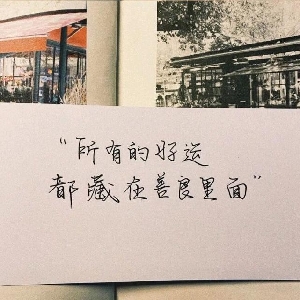 “所有的好运
都藏在善良里面”